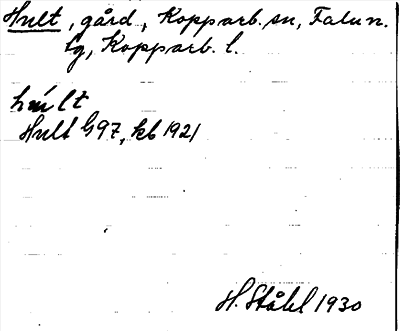 Hult, gård, Kopparb. sn, Falu n.
tg, Kopparb. l.
hult
Hult G97, kb 1921
H. Ståhl 1930